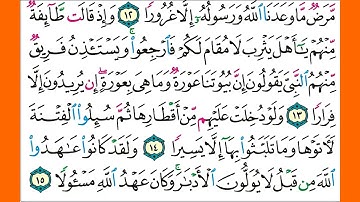 مَّرَضٌ مَّا وَعَدَنَا ٱللَّهُ وَرَسُولُهُۥٓ إِلَّا غُرُورًا ١٢ وَإِذْ قَالَت طَّآئِفَةٌ
مِّنْهُمْ يَـٰٓأَهْلَ يَثْرِبَ لَا مُقَامَ لَكُمْ فَٱرْجِعُوا۟ ۚ وَيَسْتَـْٔذِنُ فَرِيقٌ
مِّنْهُمُ ٱلنَّبِىَّ يَقُولُونَ إِنَّ بُيُوتَنَا عَوْرَةٌ وَمَا هِىَ بِعَوْرَةٍ ۖ إِن يُرِيدُونَ إِلَّا
فِرَارًا ١٣ وَلَوْ دُخِلَتْ عَلَيْهِم مِّنْ أَقْطَارِهَا ثُمَّ سُئِلُوا۟ ٱلْفِتْنَةَ
لَـَٔاتَوْهَا وَمَا تَلَبَّثُوا۟ بِهَآ إِلَّا يَسِيرًا ١٤ وَلَقَدْ كَانُوا۟ عَـٰهَدُوا۟
ٱللَّهَ مِن قَبْلُ لَا يُوَلُّونَ ٱلْأَدْبَـٰرَ ۚ وَكَانَ عَهْدُ ٱللَّهِ مَسْـُٔولًا ١٥